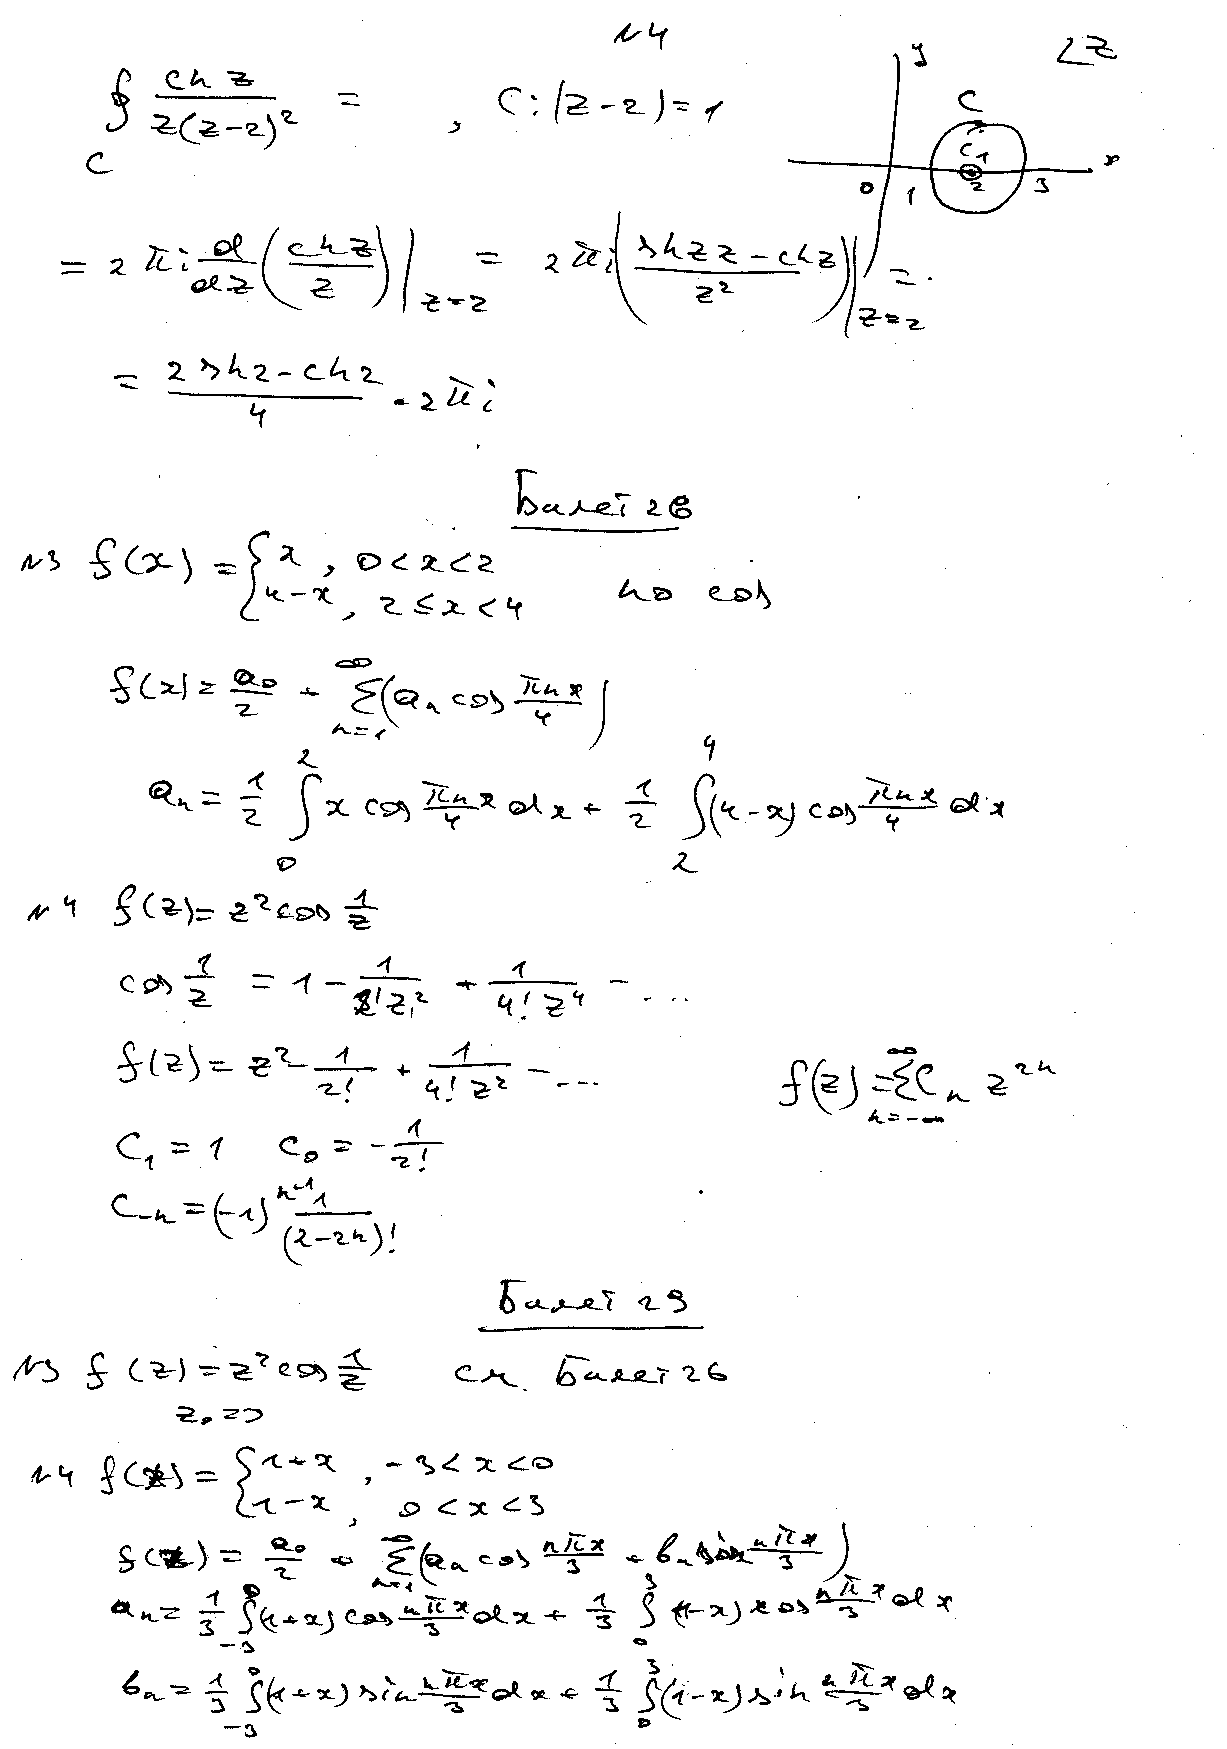 N4
∮_C ch z / z(z-2)² = , C: |z-2| = 1
y ∠Z
C
C₁
0 1 2 3 x
= 2πi d/dz (ch z / z)|_{z=2} = 2πi ((sh z z - ch z) / z²)|_{z=2} =
= (2 sh 2 - ch 2) / 4 · 2πi
Билет 26
N3 f(x) = { x, 0<x<2
4-x, 2≤x<4 по cos
f(x) = a₀/2 + Σ_{n=1}^{∞} (aₙ cos πnx/4)
aₙ = 1/2 ∫₀² x cos πnx/4 dx + 1/2 ∫₂⁴ (4-x) cos πnx/4 dx
N4 f(z) = z² cos 1/z
cos 1/z = 1 - 1/2!z² + 1/4!z⁴ - ...
f(z) = z² - 1/2! + 1/4!z² - ... f(z) = Σ_{n=-∞}^{∞} Cₙ z²ⁿ
C₁ = 1 C₀ = -1/2!
C₋ₙ = (-1)ⁿ⁻¹ 1/(2-2n)!
Билет 29
N3 f(z) = z² cos 1/z см. Билет 26
z₀=0
N4 f(x) = { 1+x, -3<x<0
1-x, 0<x<3
f(x) = a₀/2 + Σ_{n=1}^{∞} (aₙ cos nπx/3 + bₙ sin nπx/3)
aₙ = 1/3 ∫₋₃⁰ (1+x) cos nπx/3 dx + 1/3 ∫₀³ (1-x) cos nπx/3 dx
bₙ = 1/3 ∫₋₃⁰ (1+x) sin nπx/3 dx + 1/3 ∫₀³ (1-x) sin nπx/3 dx